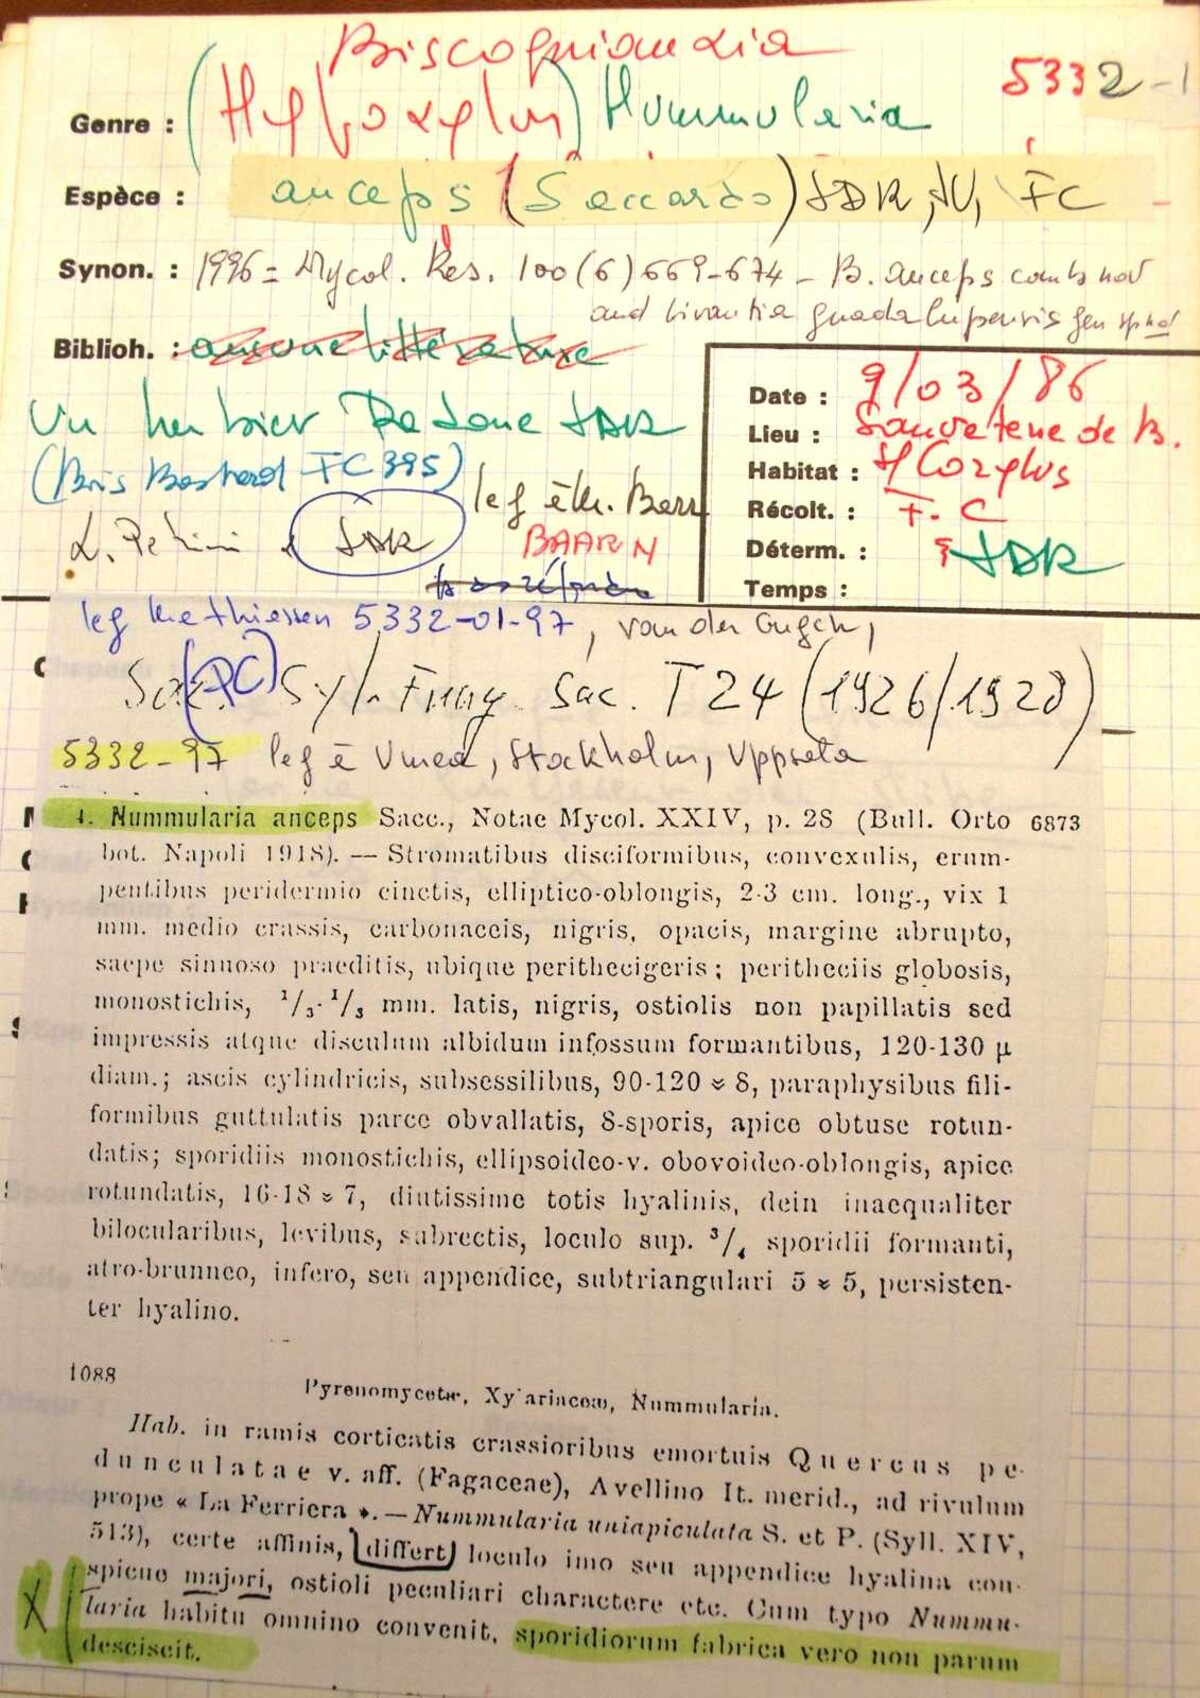 Biscogniauxia
5332-1
Genre : (Hypoxylon) Nummularia
Espèce : anceps (Saccardo) JDR, JV, FC
Synon. : 1996 = Mycol. Res. 100 (6) 669-674 - B. anceps comb nov
and Vivantia guadalupensis gen sp nov
Biblioh. : aucune littérature
Vu herbier Padoue JDR
(Bois Bashard FC 395)
leg
BAARN
L. Petrini JDR
Date : 9/03/86
Lieu : Sauveterre de B.
Habitat : Corylus
Récolt. : F. C
Déterm. : JDR
Temps :
leg Mathiassen 5332-01-97, van der Gugch,
Sac. (PC) Syl. Fung. Sac. T 24 (1926/1928)
5332-97 leg à Umea, Stockholm, Uppsala
4. Nummularia anceps Sacc., Notae Mycol. XXIV, p. 28 (Bull. Orto 6873
bot. Napoli 1918). — Stromatibus disciformibus, convexulis, erum-
pentibus peridermio cinctis, elliptico-oblongis, 2-3 cm. long., vix 1
mm. medio crassis, carbonaceis, nigris, opacis, margine abrupto,
saepe sinuoso praeditis, ubique perithecigeris; peritheciis globosis,
monostichis, 1/3-1/3 mm. latis, nigris, ostiolis non papillatis sed
impressis atque disculum albidum infossum formantibus, 120-130 μ
diam.; ascis cylindricis, subsessilibus, 90-120 ≈ 8, paraphysibus fili-
formibus guttulatis parce obvallatis, 8-sporis, apice obtuse rotun-
datis; sporidiis monostichis, ellipsoideo-v. obovoideo-oblongis, apice
rotundatis, 16-18 ≈ 7, diutissime totis hyalinis, dein inaequaliter
bilocularibus, levibus, subrectis, loculo sup. 3/4 sporidii formanti,
atro-brunneo, infero, seu appendice, subtriangulari 5 ≈ 5, persisten-
ter hyalino.
1088
Pyrenomycetæ, Xylariaceæ, Nummularia.
Hab. in ramis corticatis crassioribus emortuis Quercus pe-
dunculatae v. aff. (Fagaceae), Avellino It. merid., ad rivulum
prope « La Ferriera ». — Nummularia uniapiculata S. et P. (Syll. XIV,
513), certe affinis, differt loculo imo seu appendice hyalina con-
spicue majori, ostioli peculiari charactere etc. Cum typo Nummu-
laria habitu omnino convenit, sporidiorum fabrica vero non parum
desciscit.
X